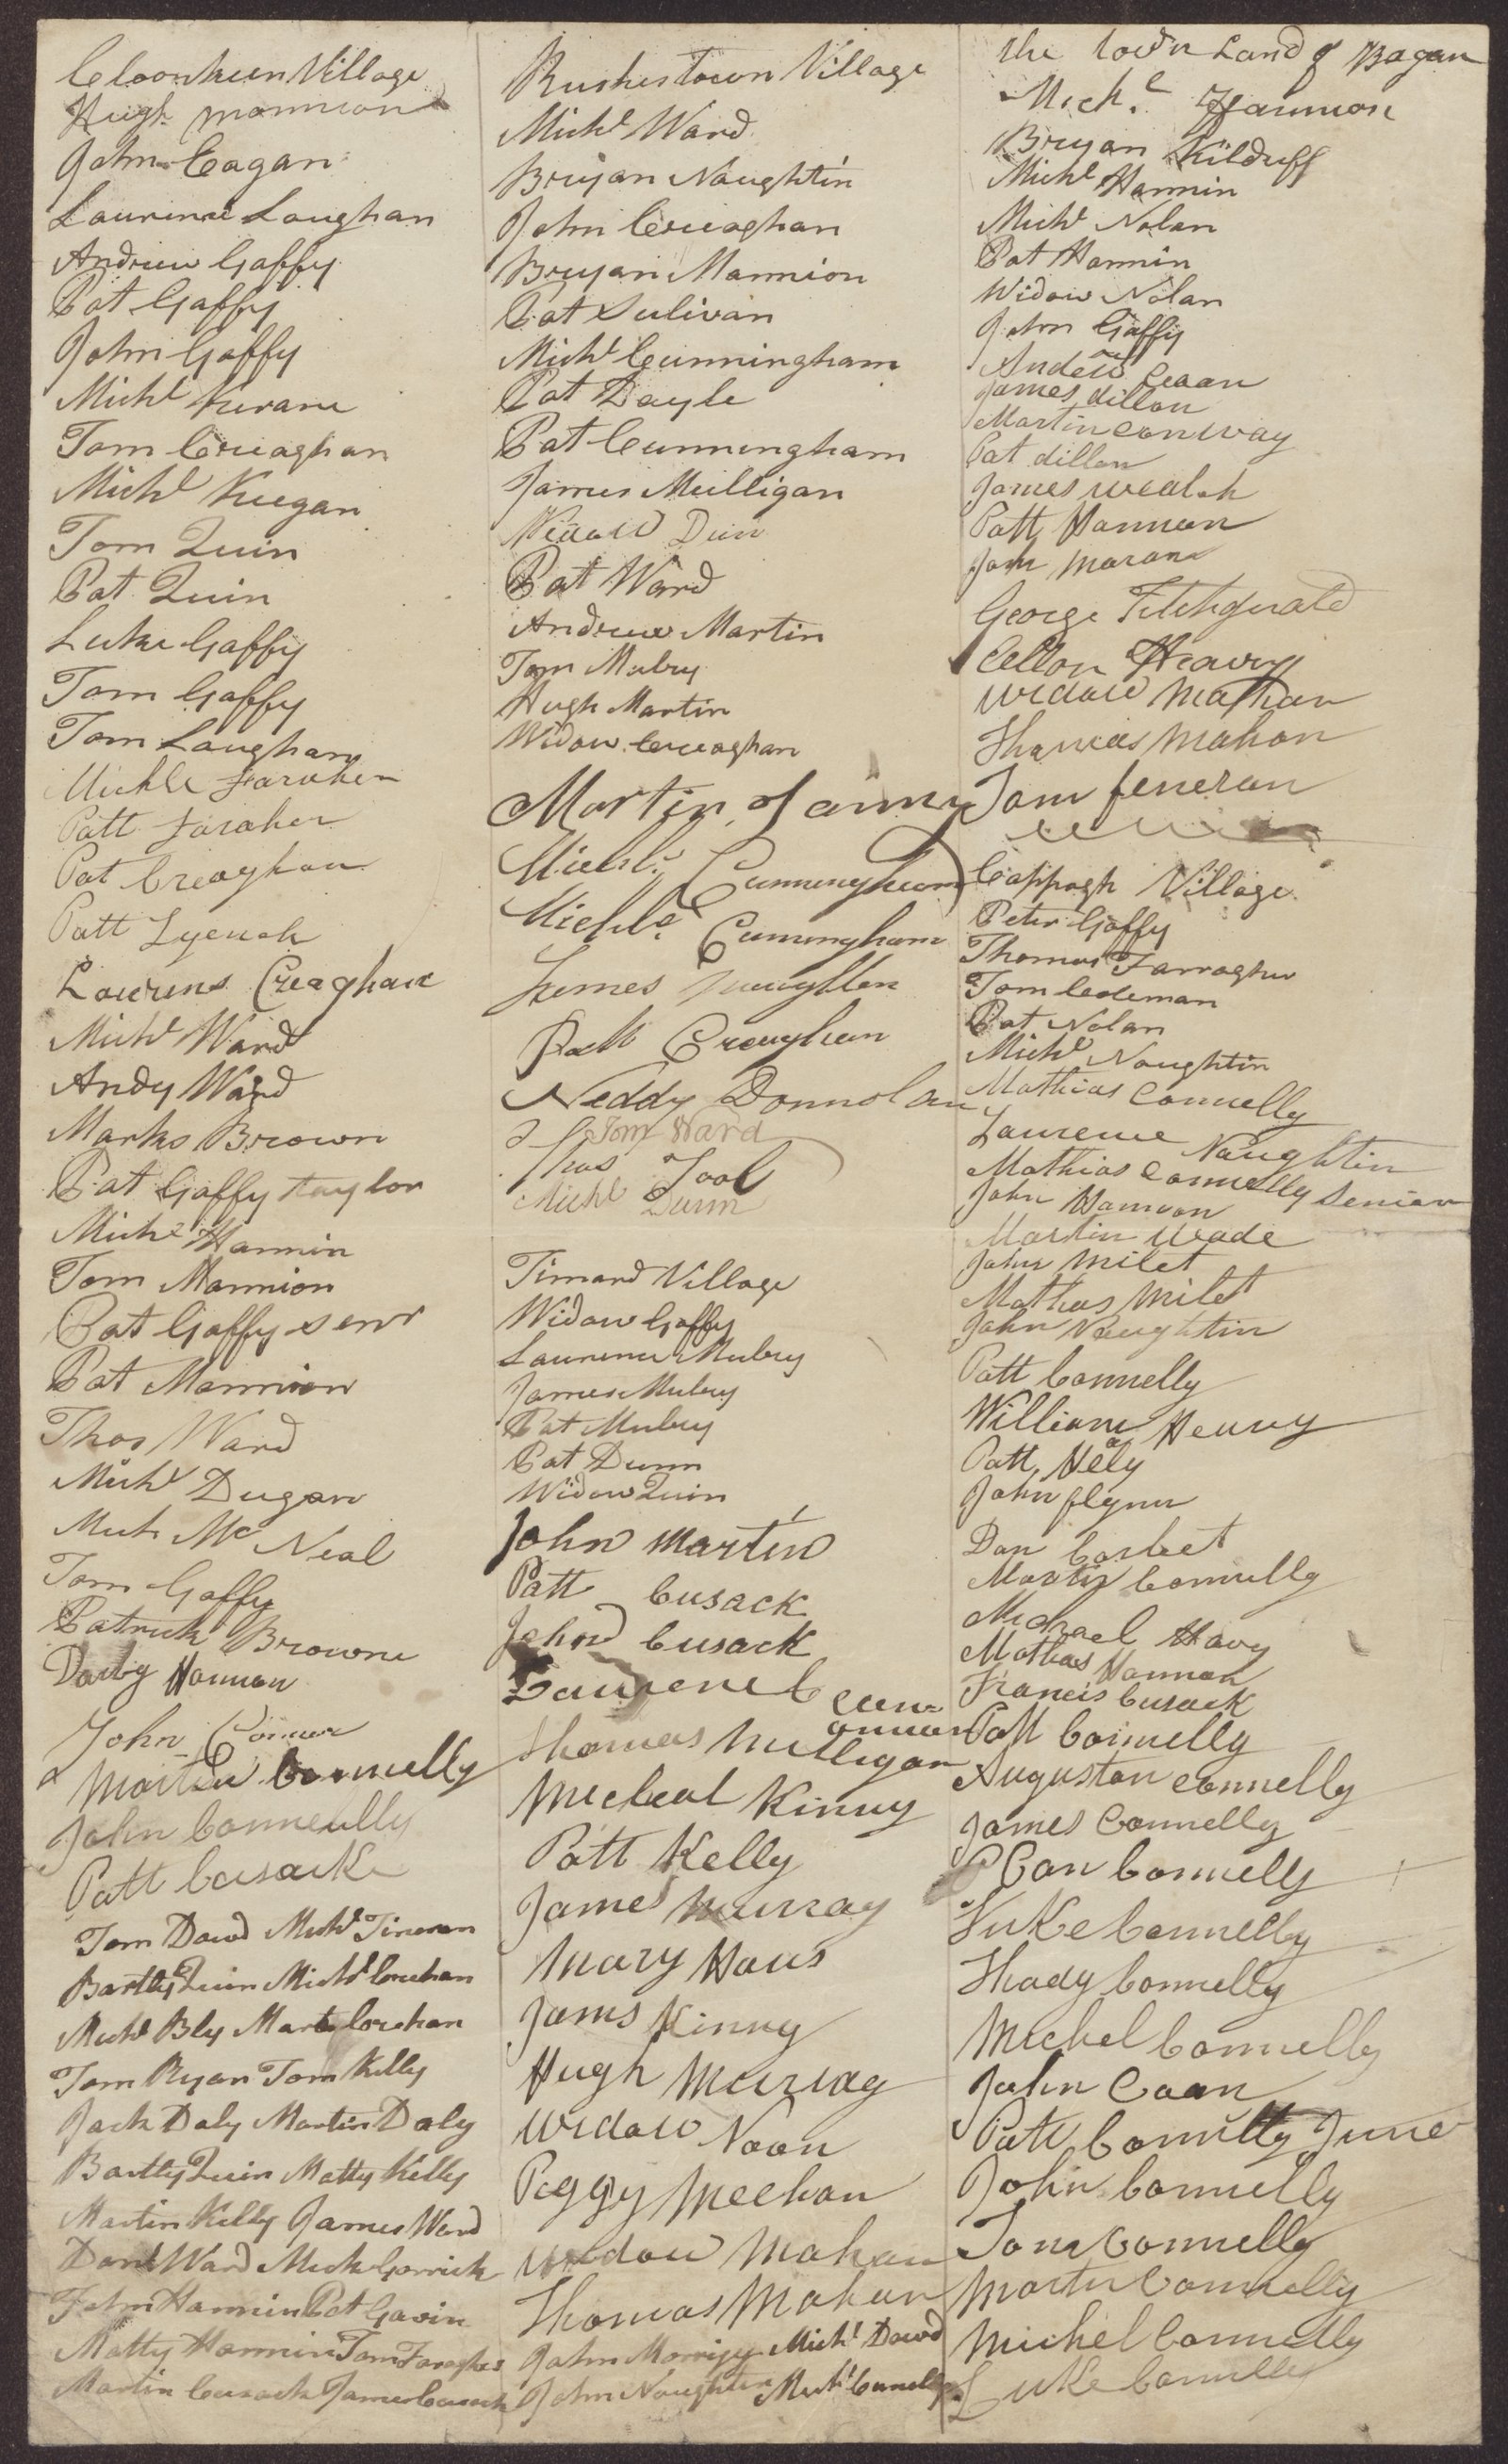 Cloonkeen Village
Hugh mannion
John Eagan
Laurence Loughan
Andrew Gaffy
Pat Gaffy
John Gaffy
Michl Kirane
Tom Creaghan
Michl Keegan
Tom Quin
Pat Quin
Luke Gaffy
Tom Gaffy
Tom Loughan
Michle Faraher
Patt Faraher
Pat Creaghan
Patt Lyench
Lowrens Creaghan
Michl Ward
Andy Ward
Marks Brown
Pat Gaffy taylor
Michl Hannin
Tom Mannion
Pat Gaffy senr
Pat Mannion
Thos Ward
Michl Dugan
Mich Mc Neal
Tom Gaffy
Patrick Browne
Darby Hannan
John Conner
Martin Connelly
John Conneully
Patt Cusacke
Tom Dowd Michl Fineran
Bartly Quin Michl Crehan
Michl Bly Mart Crehan
Tom Ryan Tom Kelly
Jack Daly Martin Daly
Bartly Quin Matty Kelly
Martin Kelly James Ward
Danl Ward Mick Gorrick
John Hannin Pat Gavin
Matty Hannin Tom Faragher
Martin Cusack James Cusack
Rushestown Village
Michl Ward
Bryan Naughtin
John Creaghan
Bryan Mannion
Pat Sulivan
Michl Cunningham
Pat Dayle
Pat Cunningham
James Mulligan
Widow Dun
Pat Ward
Andrew Martin
Tom Mulry
Hugh Martin
Widow Creaghan
Martin
Michl. Cunningham
Michle. Cunningham
James
Patt Creaghan
Neddy Donnolan
Tom Ward
Thos Tool
Michl Dunn
Timard Village
Widow Gaffy
Laurence Mulry
James Mulry
Pat Mulry
Pat Dunn
Widow Quin
John Martin
Patt Cusack
John Cusack
Thomas Mulligan
Micheal Kinny
Patt Kelly
James Murray
Mary Haus
Jams Kinny
Hugh Murray
Widow Noon
Peggy Meehan
Widow Mahan
Thomas Mahan
John Morrisy Michl Dowd
John Naughten Michl Connelly
the town Land of Bagan
Michl. Hannion
Bryan Kilduff
Michl Hannin
Michl Nolan
Pat Hannin
Widow Nolan
John Gaffy
Andew Ceaan
James dillon
Martin Conway
Pat dillon
James Wealsh
Patt Hannon
John Moran
George Fitchgerald
Widow Mahan
Thomas Mahon
Tom feneran
Cappagh Village
Peter Gaffy
Thomas Farragher
Tom Coleman
Pat Nolan
Michl Naughtin
Mathias Connelly
Laurence Naughtin
Mathias Connelly Senior
John Hannon
Martin Weade
John Milet
Mathias Milet
John Naughtin
Patt Connelly
William Heavy
Patt Healy
John flynn
Dan Corbeet
Martin Connelly
Michael Havy
Mathias Hannon
Francis Cusack
Patt Connelly
Augustan Connelly
James Connelly
Connelly
Luke Connelly
Thady Connelly
Michel Connelly
John Coan
Patt Connelly June
John Connelly
Tom Connelly
Martin Connelly
Michel Connelly
Luke Connelly